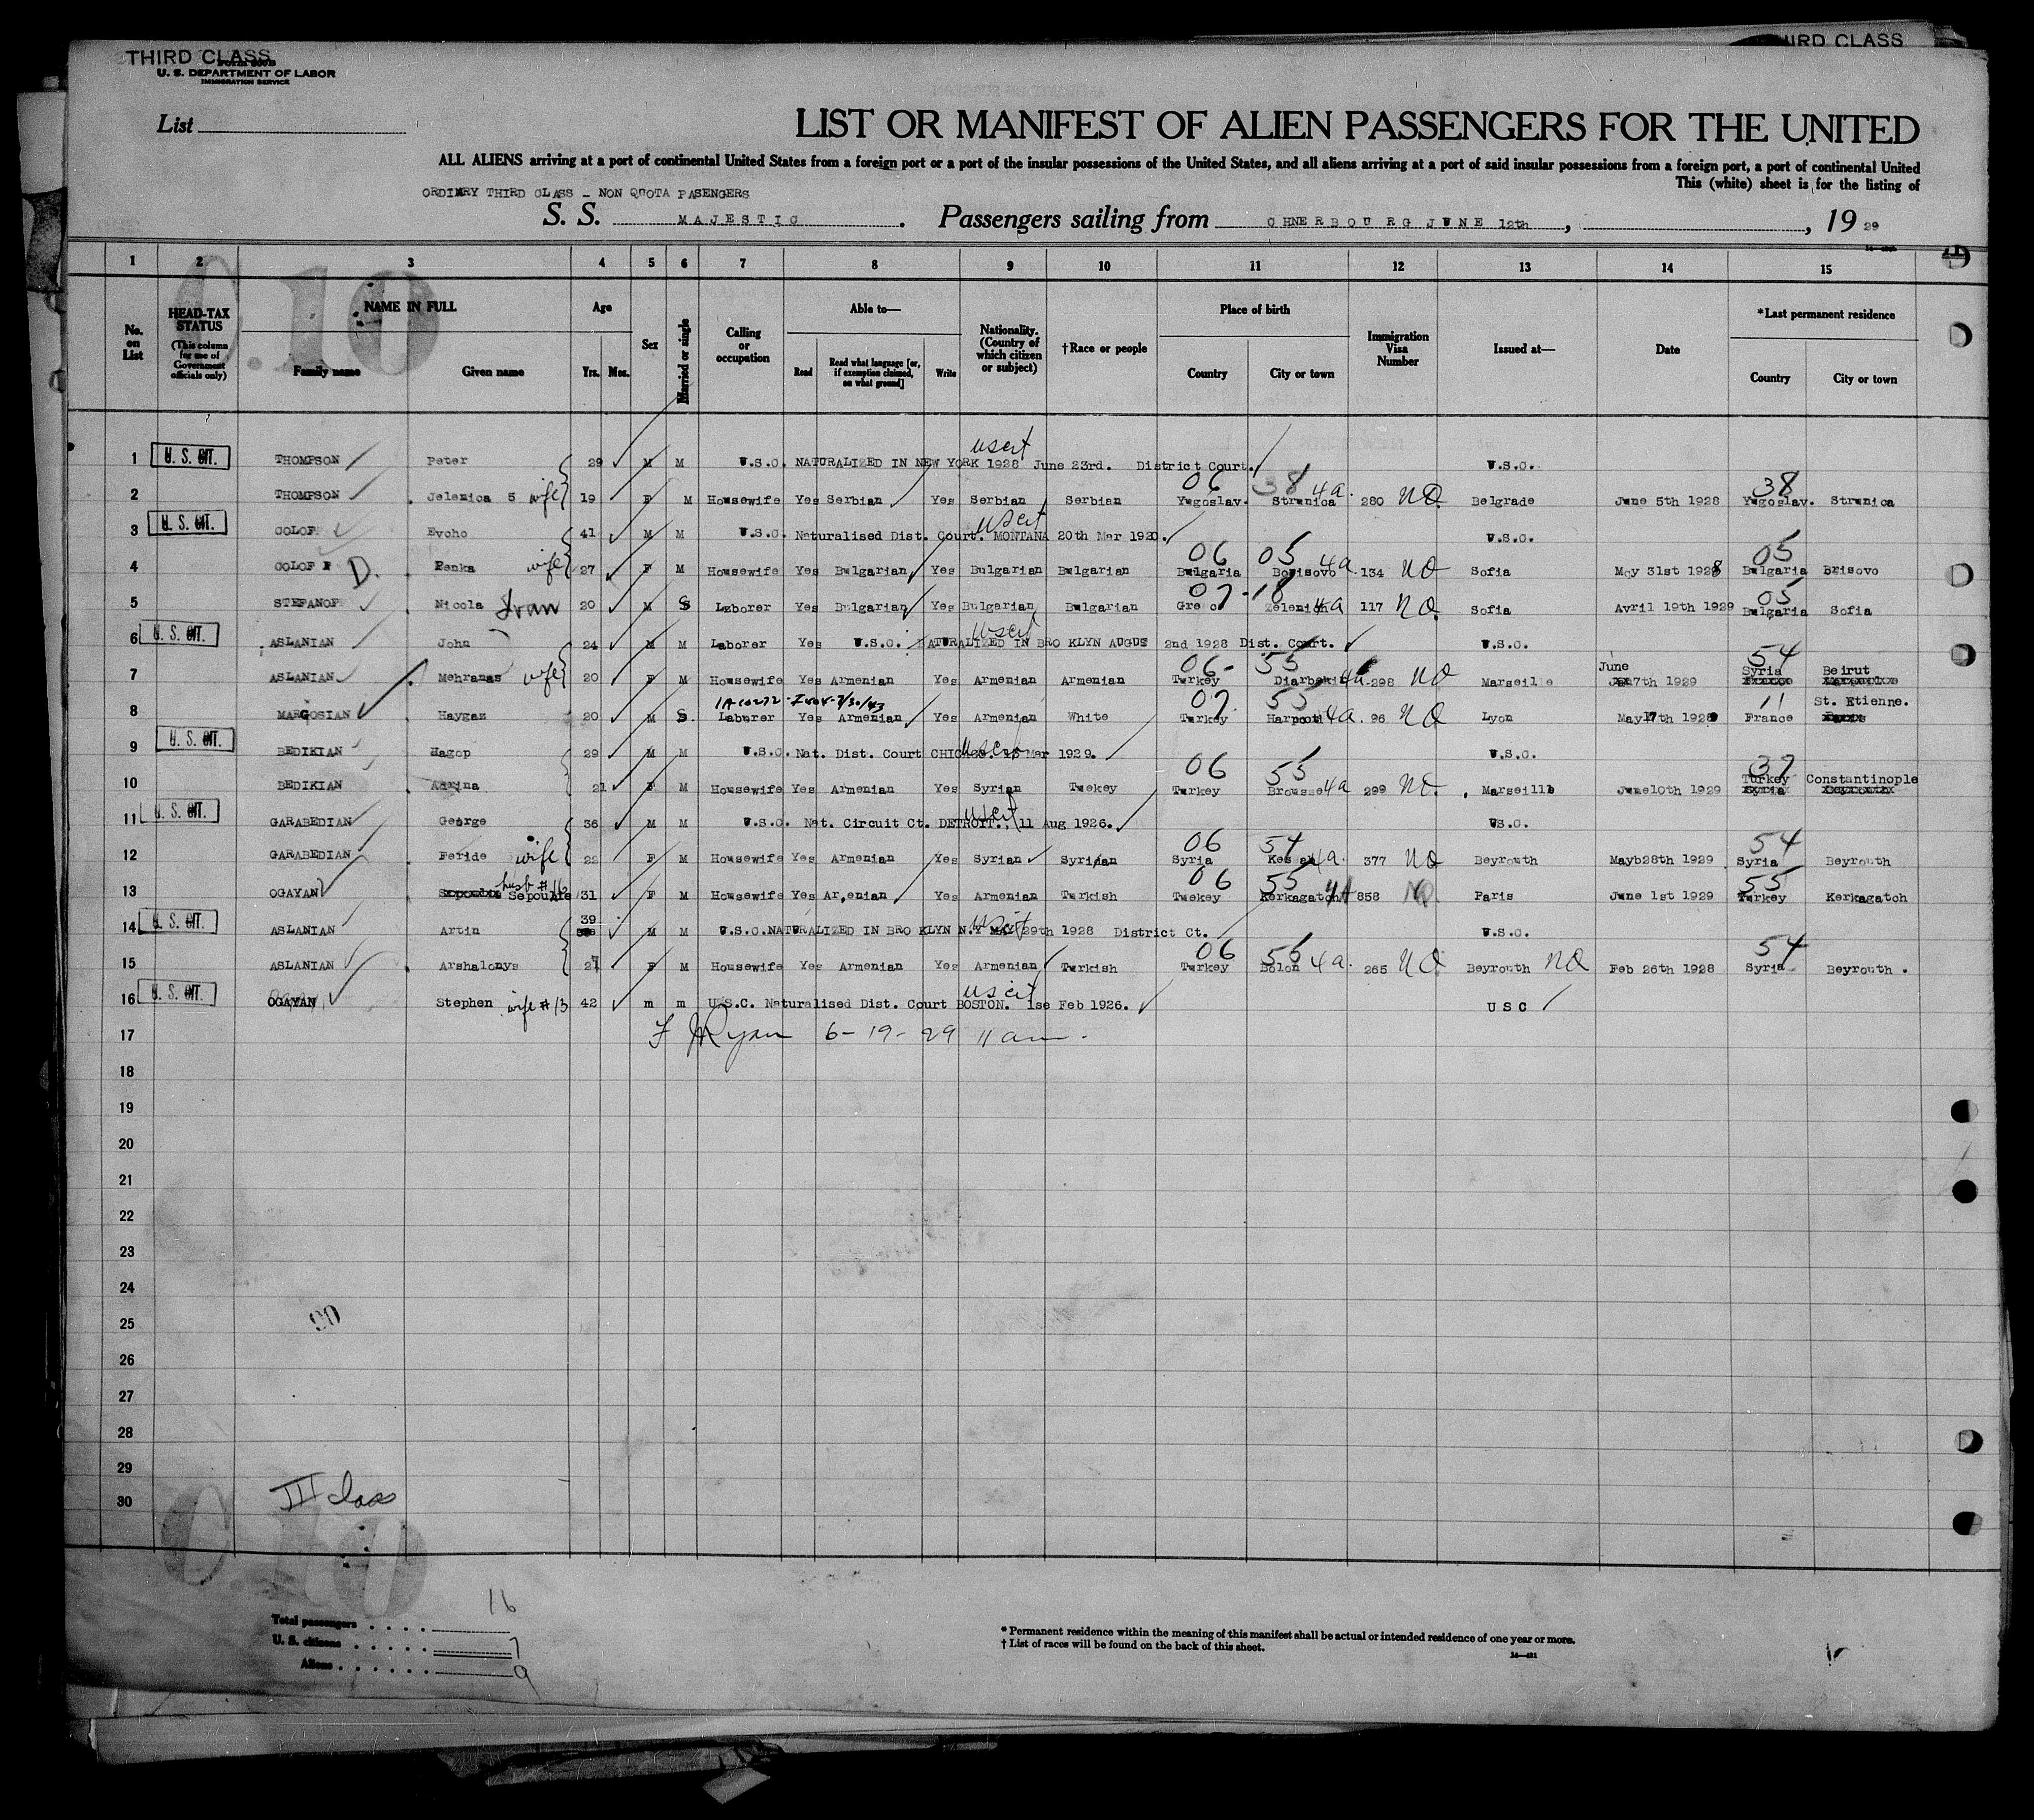 THIRD CLASS
THIRD CLASS
U. S. DEPARTMENT OF LABOR
IMMIGRATION SERVICE
List
LIST OR MANIFEST OF ALIEN PASSENGERS FOR THE UNITED
ALL ALIENS arriving at a port of continental United States from a foreign port or a port of the insular possessions of the United States, and all aliens arriving at a port of said insular possessions from a foreign port, a port of continental United
This (white) sheet is for the listing of
ORDINRY THIRD CLASS _ NON QUOTA PASENGERS
S. S. MAJESTIC. Passengers sailing from CHNERBOURG JUNE 12th, , 19 29
1 2 3 4 5 6 7 8 9 10 11 12 13 14 15
C.10
No. on List
HEAD-TAX STATUS (This column for use of Government officials only)
NAME IN FULL
Family name Given name
Age
Yrs. Mos.
Sex
Married or single
Calling or occupation
Able to—
Read
Read what language [or, if exemption claimed, on what ground]
Write
Nationality. (Country of which citizen or subject)
†Race or people
Place of birth
Country City or town
Immigration Visa Number
Issued at—
Date
*Last permanent residence
Country City or town
1 U. S. CIT. THOMPSON Peter 29 M M U.S.C. NATURALIZED IN NEW YORK 1928 June 23rd. District Court. US cit U.S.C.
2 THOMPSON Jelenica 5 wife 19 F M Housewife Yes Serbian Yes Serbian Serbian 06 Yugoslav. 38 4a. Strumica 280 NQ Belgrade June 5th 1928 38 Yugoslav. Strumica
3 U. S. CIT. COLOFF Evcho 41 M M U.S.C. Naturalised Dist. Court. MONTANA 20th Mar 1920. US cit U.S.C.
4 COLOF F D. Penka wife 27 F M Housewife Yes Bulgarian Yes Bulgarian Bulgarian 06 Bulgaria 05 4a Borisovo 134 NQ Sofia May 31st 1928 05 Bulgaria Brisovo
5 STEFANOF Nicola Ivan 20 M S Laborer Yes Bulgarian Yes Bulgarian Bulgarian 07-18 Grec 4a 117 NQ. Sofia Avril 19th 1929 05 Bulgaria Sofia
6 U. S. CIT. ASLANIAN John 24 M M Laborer Yes U.S.C. NATURALIZED IN BRO KLYN AUGUS 2nd 1928 Dist. Court. US cit U.S.C.
7 ASLANIAN Mehranas wife 20 F M Housewife Yes Armenian Yes Armenian Armenian 06- Turkey 55 Diarbekir 298 NQ Marseille June 7th 1929 54 Syria Beirut
8 MARGOSIAN Haygaz 20 M S. Laborer Yes Armenian Yes Armenian White 07. Turkey 55 Harpoot 4a. 96 NQ Lyon May 17th 1929 11 France St. Etienne.
9 U. S. CIT. BEDIKIAN Hagop 29 M M U.S.C. Nat. Dist. Court CHICAGO. 15 Mar 1929. US cit U.S.C.
10 BEDIKIAN 21 F M Housewife Yes Armenian Yes Syrian Tuekey 06 Turkey 55 Brousse 4a 299 NQ. Marseille June10th 1929 37 Turkey Constantinople
11 U. S. CIT. GARABEDIAN George 36 M M U.S.C. Nat. Circuit Ct. DETROIT., 11 Aug 1926. US cit US.C.
12 GARABEDIAN Feride wife 22 F M Housewife Yes Armenian Yes Syrian Syrian 06 Syria 54 4a. 377 NQ Beyrouth Mayb28th 1929 54 Syria Beyrouth
13 OGAYAN husb #16 Sepouhie 31 F M Housewife Yes Ar,enian Yes Armenian Turkish 06 Tuekey 55 Kerkagatch 4A 858 NQ Paris June 1st 1929 55 Turkey Kerkagatch
14 U. S. CIT. ASLANIAN Artin 39 M M U.S.C.NATURALIZED IN BRO KLYN N.Y 29th 1928 District Ct. US cit U.S.C.
15 ASLANIAN Arshalonys 27 F M Housewife Yes Armenian Yes Armenian Turkish 06 Turkey 55 Bolon 4a. 265 NQ Beyrouth NQ Feb 26th 1928 54 Syria Beyrouth .
16 U. S. CIT. OGAYAN Stephen wife #13 42 m m U.S.C. Naturalised Dist. Court BOSTON. 1se Feb 1926. US cit U S C
17 F Ryan 6-19-29 11 am.
18
19
20
21
22
23
24
25
26
27
28
29
30
III class
C.10
Total passengers . . . . 16
U. S. citizens . . . . . 7
Aliens . . . . . . 9
* Permanent residence within the meaning of this manifest shall be actual or intended residence of one year or more.
† List of races will be found on the back of this sheet.